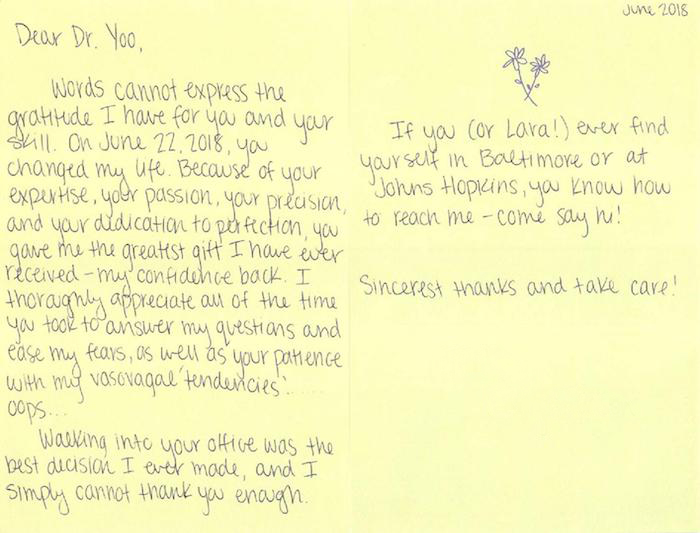 Dear Dr. Yoo,
Words cannot express the
gratitude I have for you and your
skill. On June 22, 2018, you
changed my life. Because of your
expertise, your passion, your precision,
and your dedication to perfection, you
gave me the greatest gift I have ever
received - my confidence back. I
thoroughly appreciate all of the time
you took to answer my questions and
ease my fears, as well as your patience
with my vasovagal 'tendencies'......
oops...
Walking into your office was the
best decision I ever made, and I
simply cannot thank you enough.
June 2018
If you (or Lara!) ever find
yourself in Baltimore or at
Johns Hopkins, you know how
to reach me - come say hi!
Sincerest thanks and take care!